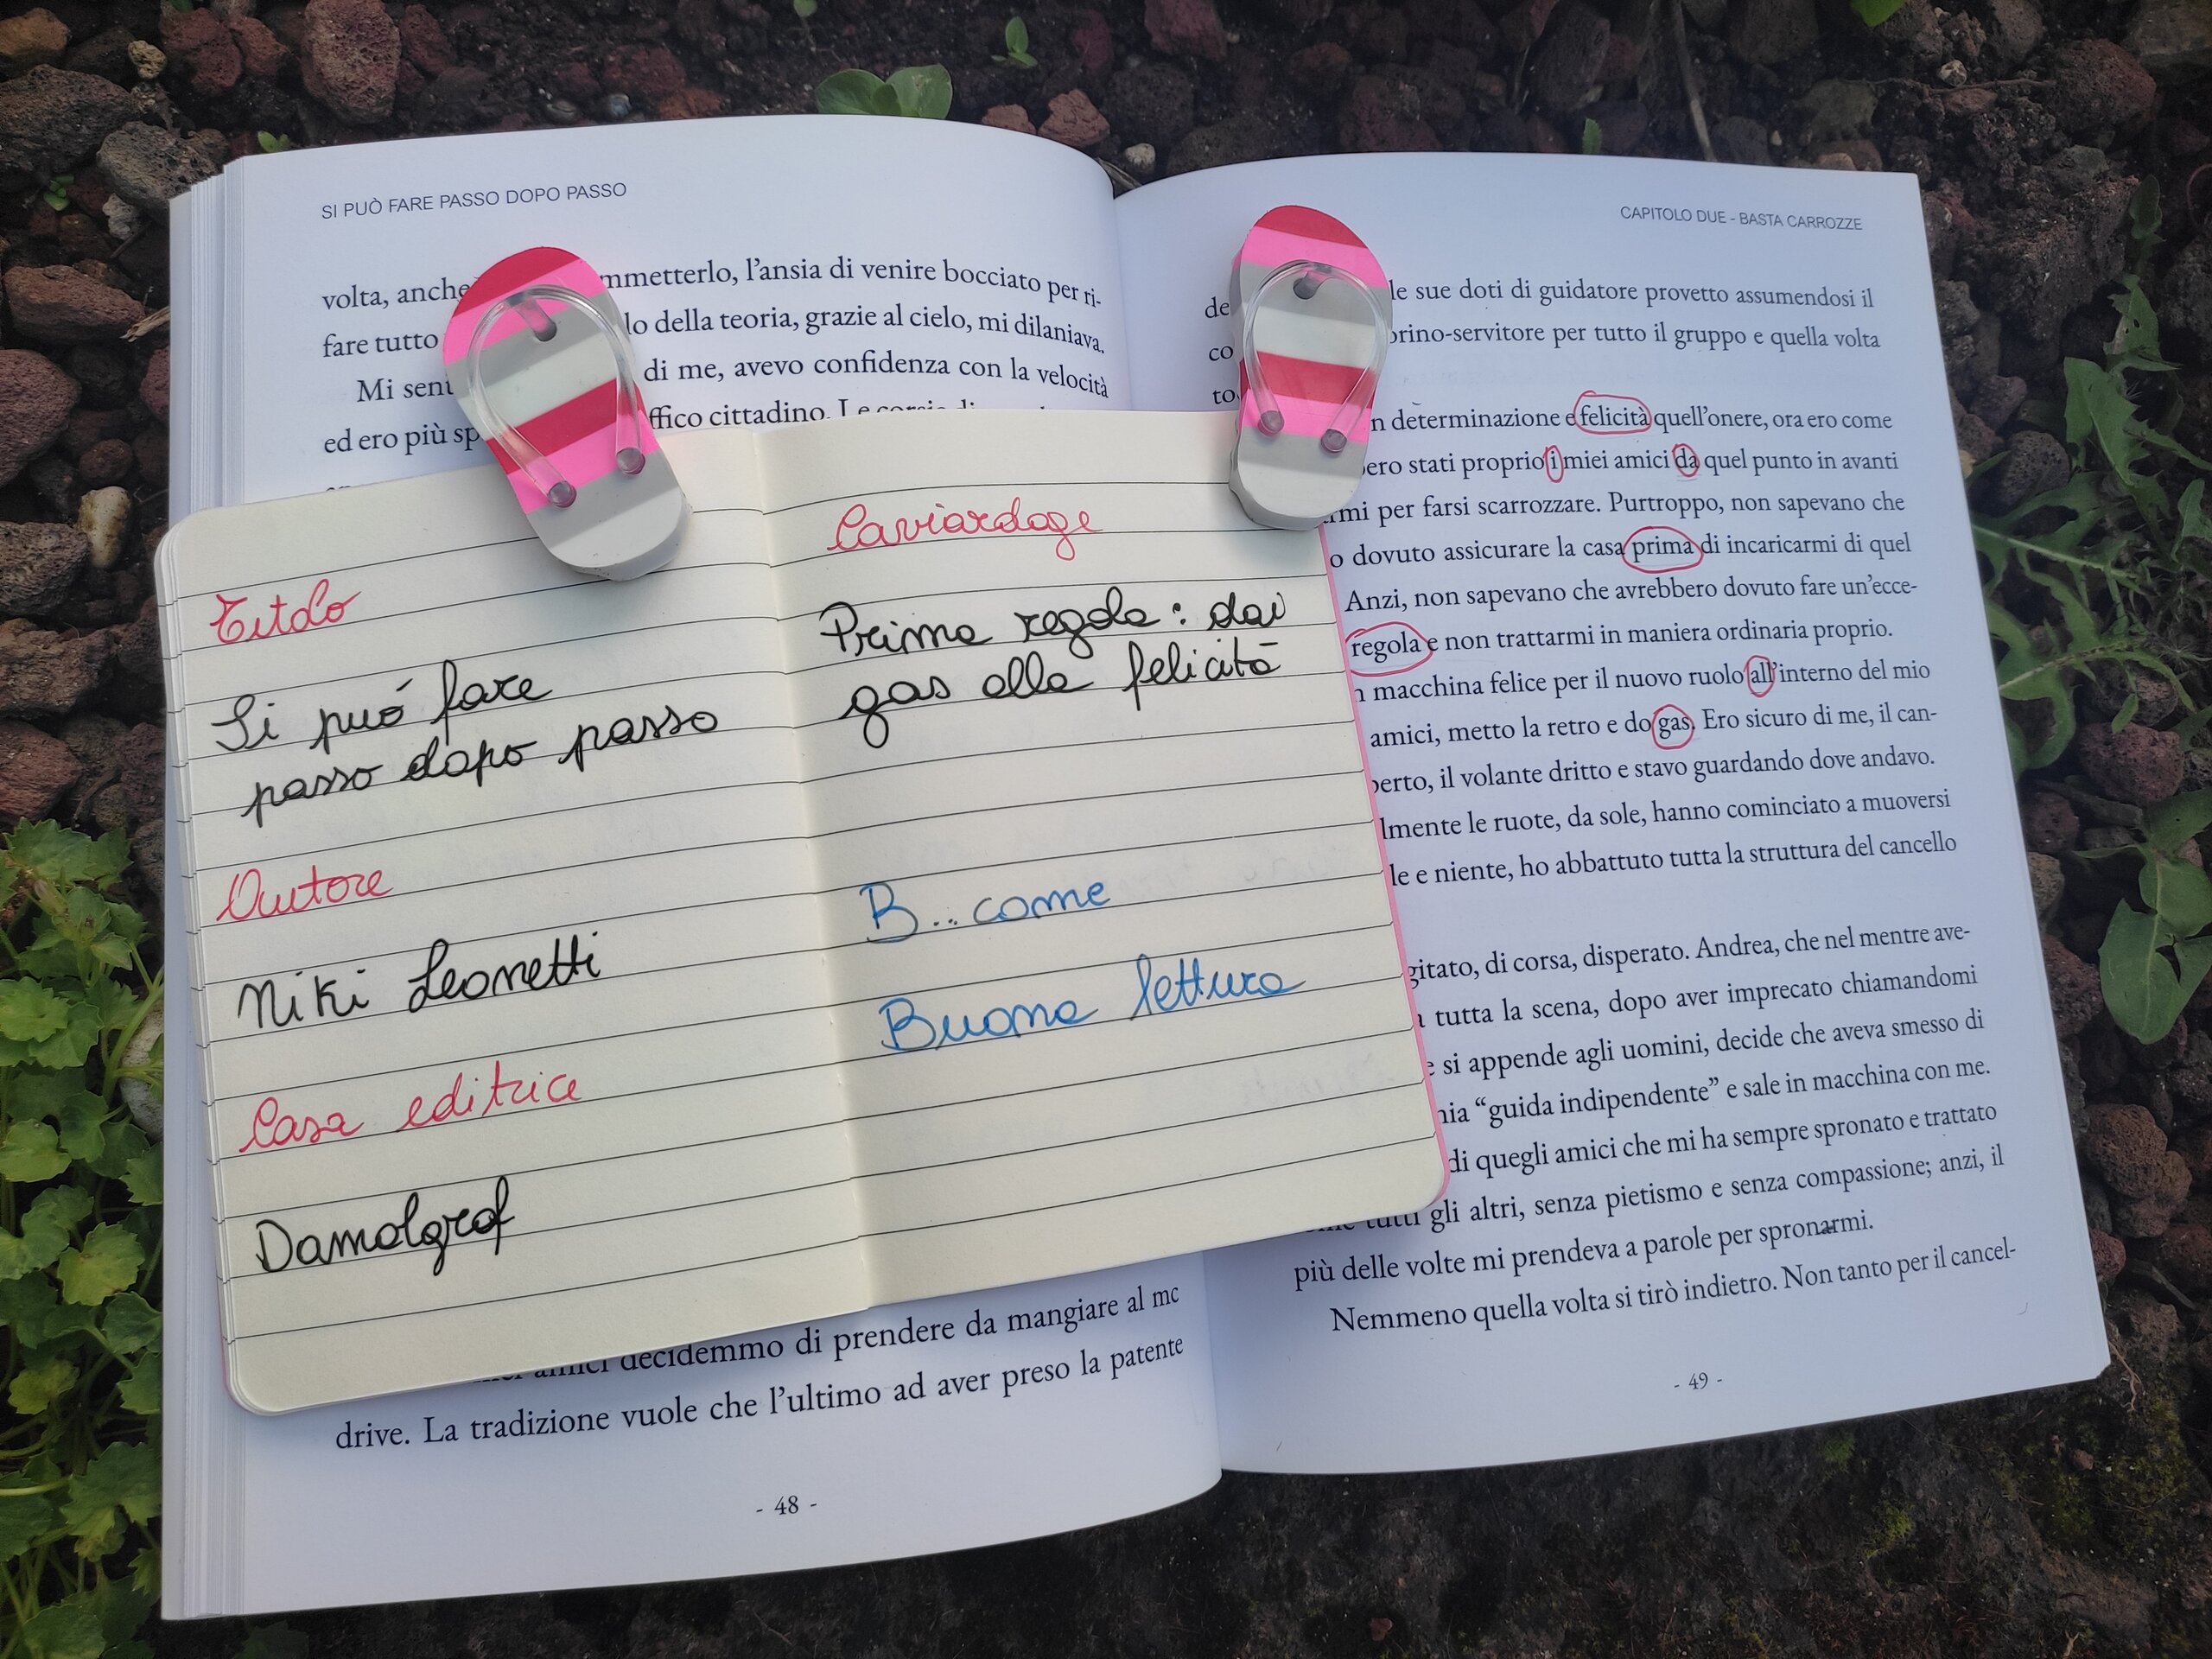 SI PUÒ FARE PASSO DOPO PASSO
volta, anche mmetterlo, l'ansia di venire bocciato per ri-
fare tutto lo della teoria, grazie al cielo, mi dilaniava.
Mi sent di me, avevo confidenza con la velocità
ed ero più sp ffico cittadino. Le corsie di
Titolo
Si può fare
passo dopo passo
Autore
Niki Leonetti
Casa editrice
Damolgraf
Caviardage
Prima regola: dai
gas alla felicità
B... come
Buona lettura
amici decidemmo di prendere da mangiare al mc
drive. La tradizione vuole che l'ultimo ad aver preso la patente
- 48 -
CAPITOLO DUE - BASTA CARROZZE
de le sue doti di guidatore provetto assumendosi il
co orino-servitore per tutto il gruppo e quella volta
to
n determinazione e felicità quell'onere, ora ero come
ero stati proprio i miei amici da quel punto in avanti
rmi per farsi scarrozzare. Purtroppo, non sapevano che
o dovuto assicurare la casa prima di incaricarmi di quel
Anzi, non sapevano che avrebbero dovuto fare un'ecce-
regola e non trattarmi in maniera ordinaria proprio.
macchina felice per il nuovo ruolo all'interno del mio
amici, metto la retro e do gas. Ero sicuro di me, il can-
perto, il volante dritto e stavo guardando dove andavo.
lmente le ruote, da sole, hanno cominciato a muoversi
le e niente, ho abbattuto tutta la struttura del cancello
gitato, di corsa, disperato. Andrea, che nel mentre ave-
a tutta la scena, dopo aver imprecato chiamandomi
e si appende agli uomini, decide che aveva smesso di
nia “guida indipendente” e sale in macchina con me.
di quegli amici che mi ha sempre spronato e trattato
tutti gli altri, senza pietismo e senza compassione; anzi, il
più delle volte mi prendeva a parole per spronarmi.
Nemmeno quella volta si tirò indietro. Non tanto per il cancel-
- 49 -